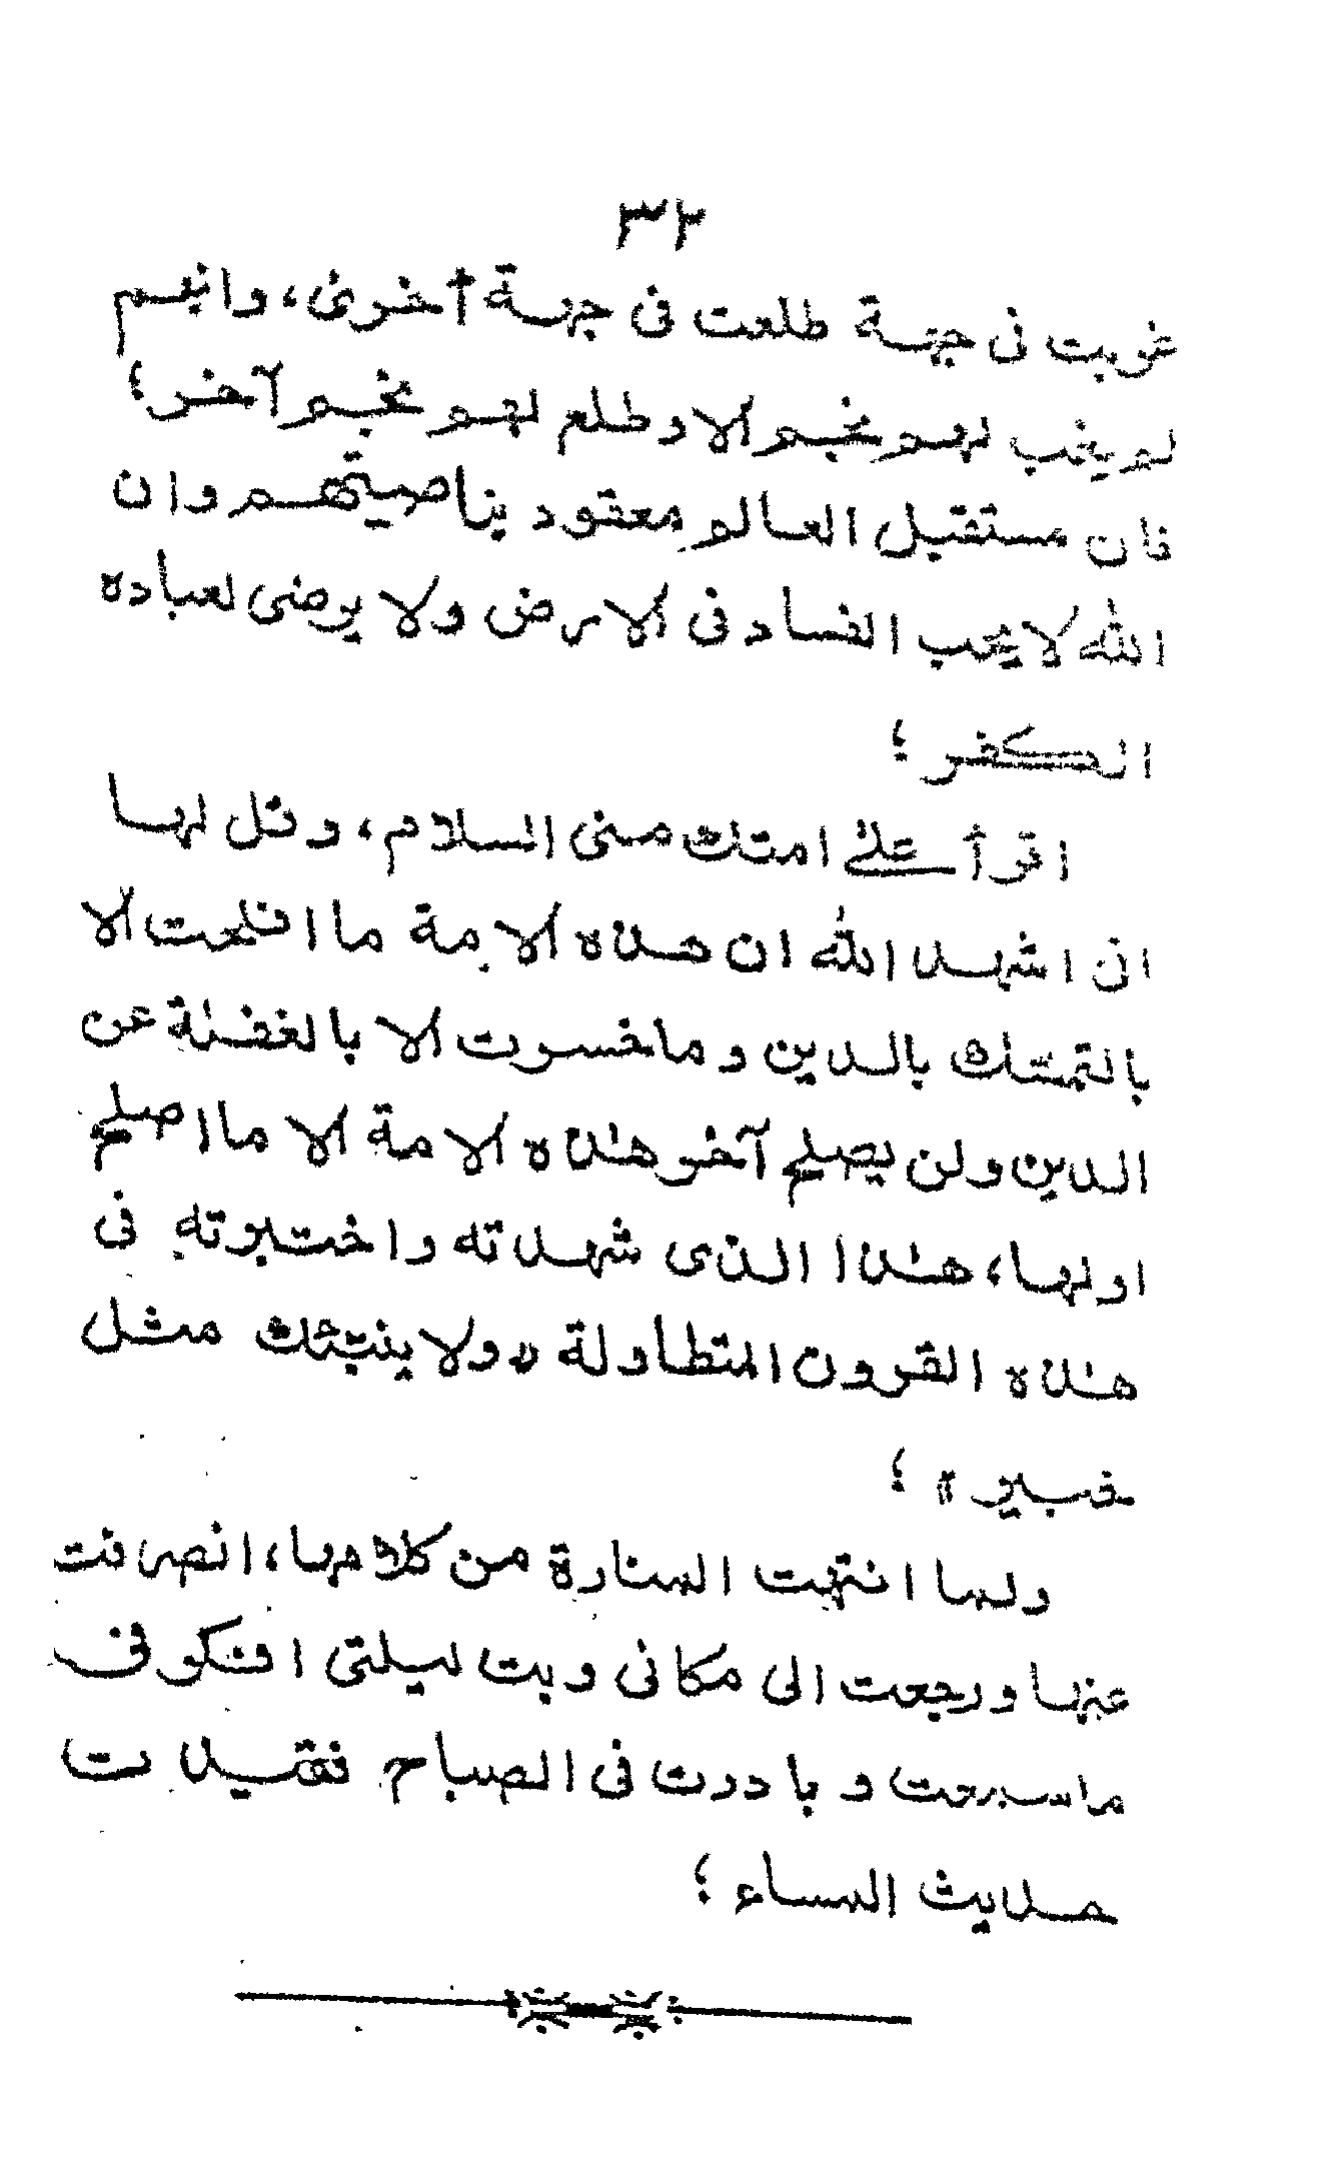 ٣٢
غربت فى جهة طلعت فى جهة أخرى، وانهم
لم يغب لهم نجم الا وطلع لهم نجم آخر؛
فان مستقبل العالم معقود بناصيتهم وان
الله لا يحب الفساد فى الارض ولا يرضى لعباده
الكفر؛
اقرأ على امتك منى السلام، وقل لها
انى اشهد الله ان هذه الامة ما افلحت الا
بالتمسك بالدين وما خسرت الا بالغفلة عن
الدين ولن يصلح آخر هذه الامة الا ما اصلح
اولها، هذا الذى شهدته واختبرته فى
هذه القرون المتطاولة "ولا ينبئك مثل
خبير"؛
ولما انتهت المنارة من كلامها، انصرفت
عنها ورجعت الى مكانى وبت ليلتى افكر فى
ما سمعت وبادرت فى الصباح فقيدت
حديث المساء؛